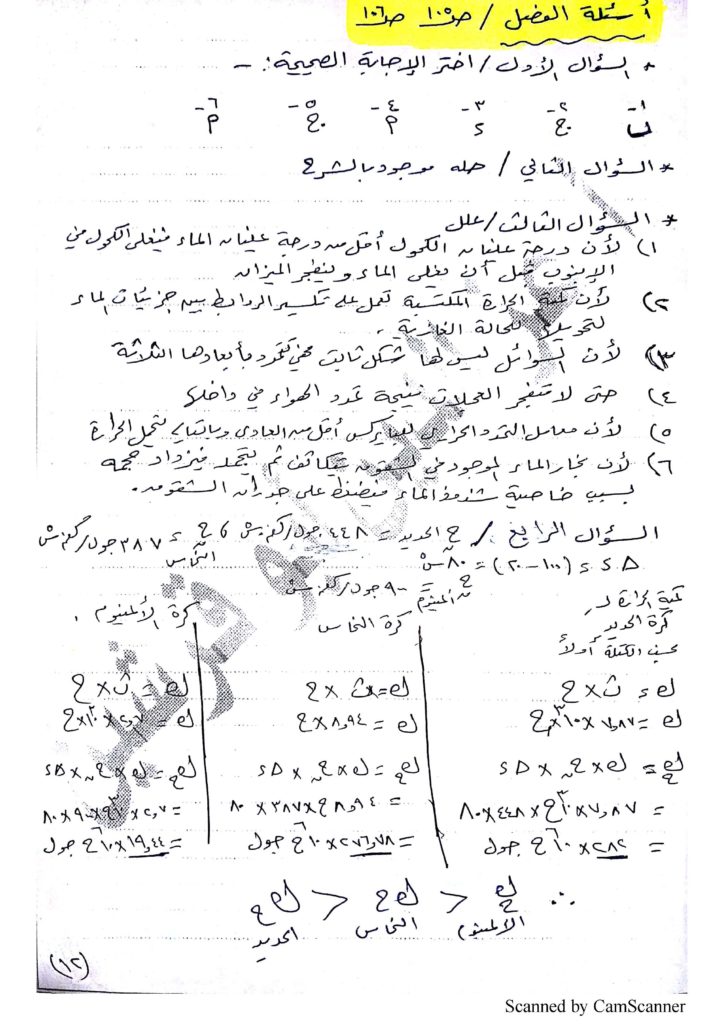 أسئلة الفصل / ص١٠٥ ص١٠٦
* السؤال الأول / اختر الإجابة الصحيحة: -
١- ٢- ٣- ٤- ٥- ٦-
ب ج د أ ج أ
* السؤال الثاني / حله موجود بالشرح
* السؤال الثالث / علل
١) لأن درجة غليان الكحول أقل من درجة غليان الماء فيغلي الكحول في
الأنبوب قبل أن يغلي الماء وينفجر الميزان
٢) لأن كمية الحرارة المكتسبة تعمل على تكسير الروابط بين جزيئات الماء
لتحويله للحالة الغازية.
٣) لأن السوائل ليس لها شكل ثابت فهي تتمدد بأبعادها الثلاثة
٤) حتى لا تنفجر العجلات نتيجة تمدد الهواء في داخلها
٥) لأن معامل التمدد الحراري للبايركس أقل من العادي وبالتالي يتحمل الحرارة
٦) لأن بخار الماء الموجود في الشقوق يتكاثف ثم يتجمد فيزداد حجمه
بسبب خاصية شذوذ الماء فيضغط على جدران الشقوق.
السؤال الرابع / ح الحديد = ٤٤٨ جول/كغم.س ، ح النحاس = ٣٨٧ جول/كغم.س
Δد = (١٠٠-٢٠) = ٨٠ س
ح ن ألمنيوم = ٩٠٠ جول/كغم.س
كمية الحرارة لـ كرة النحاس كرة الألمنيوم.
كرة الحديد
نحسب الكتلة أولاً
ك = ث × ح ك = ث × ح ك = ث × ح
ك = ٧,٨٧ × ١٠^٣ ح ك = ٨,٩٤ × ح ك = ٢,٧ × ١٠^٣ × ح
كح = ك × حن × Δد كح = ك × حن × Δد كح = ك × حن × Δد
= ٧,٨٧ × ١٠^٣ ح × ٤٤٨ × ٨٠ = ٨,٩٤ ح × ٣٨٧ × ٨٠ = ٢,٧ × ١٠^٣ ح × ٩٠ × ٨٠
= ٢٨٢ × ١٠^٦ ح جول = ٢٧٦,٧٨ × ١٠^٦ ح جول = ١٩,٤٤ × ١٠^٦ ح جول
∴ كح < كح < كح
الألمنيوم النحاس الحديد
(١٢)
Scanned by CamScanner